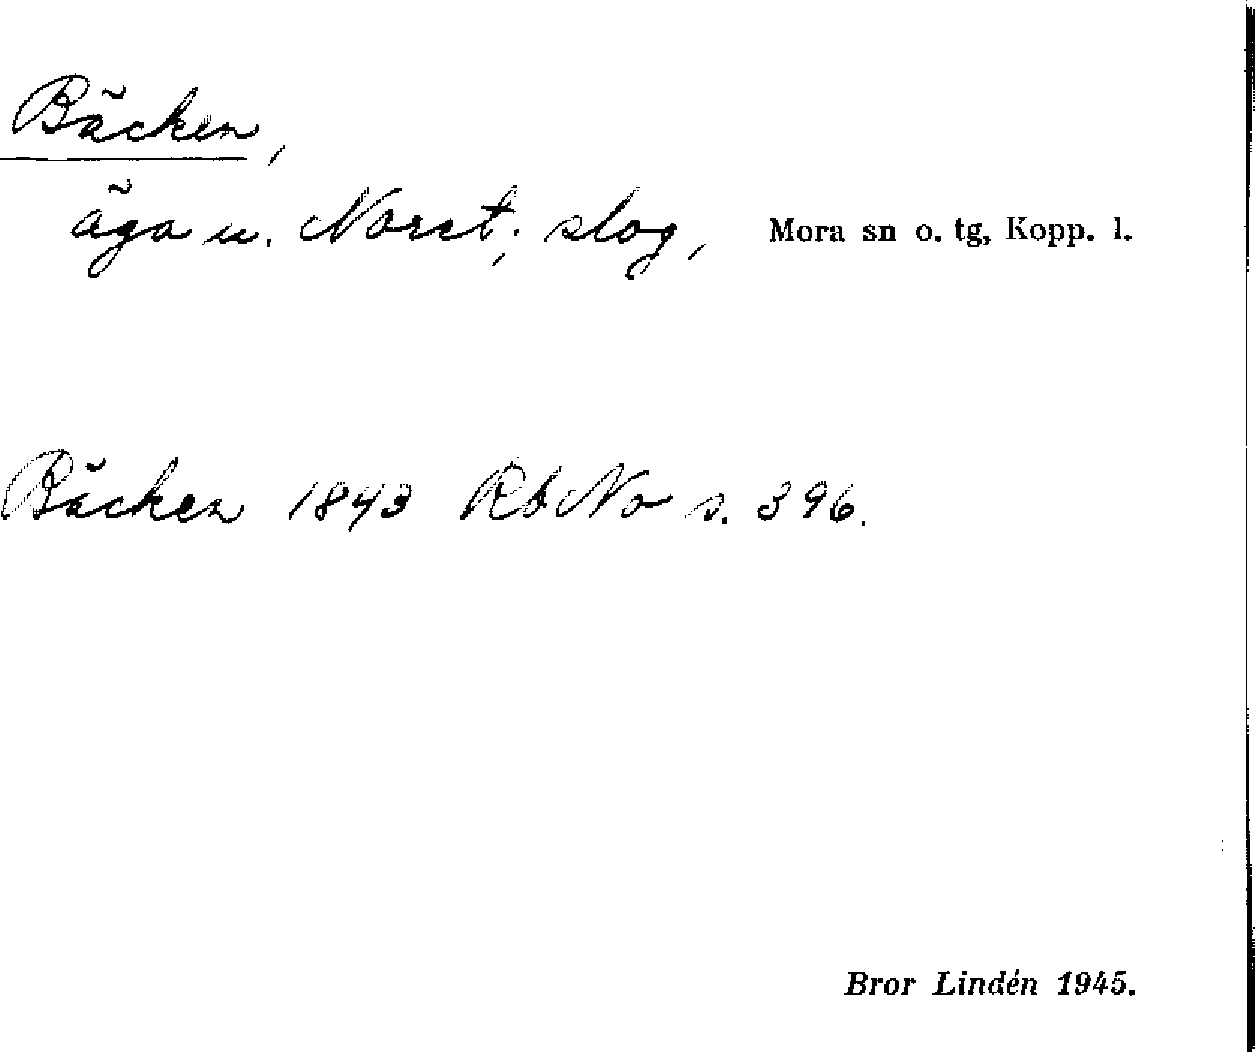 Bäcken,
äga u. Noret; slog, Mora sn o. tg, Kopp. l.
Bäcken 1843 Rb No s. 396.
Bror Lindén 1945.